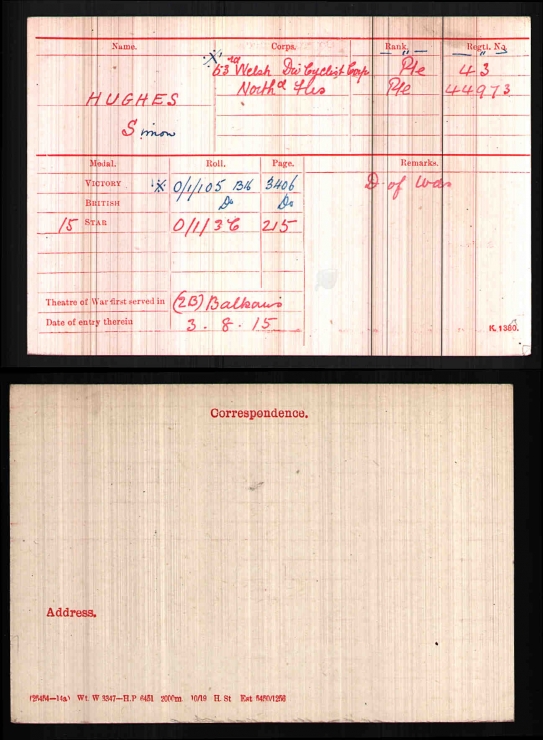 Name. Corps. Rank. Regtl. No.
53rd Welsh Div Cyclist Corp Pte 43
HUGHES North'd Fus Pte 44973
Simon
Medal. Roll. Page. Remarks.
VICTORY O/1/105 B16 3406 D of Wds
BRITISH Do Do
15 STAR O/1/3 C 215
Theatre of War first served in (2B) Balkans
Date of entry therein 3. 8. 15
K. 1380.
Correspondence.
Address.
Wt. W 3347—H.P 6451 2000m. 10/19 H. St Est